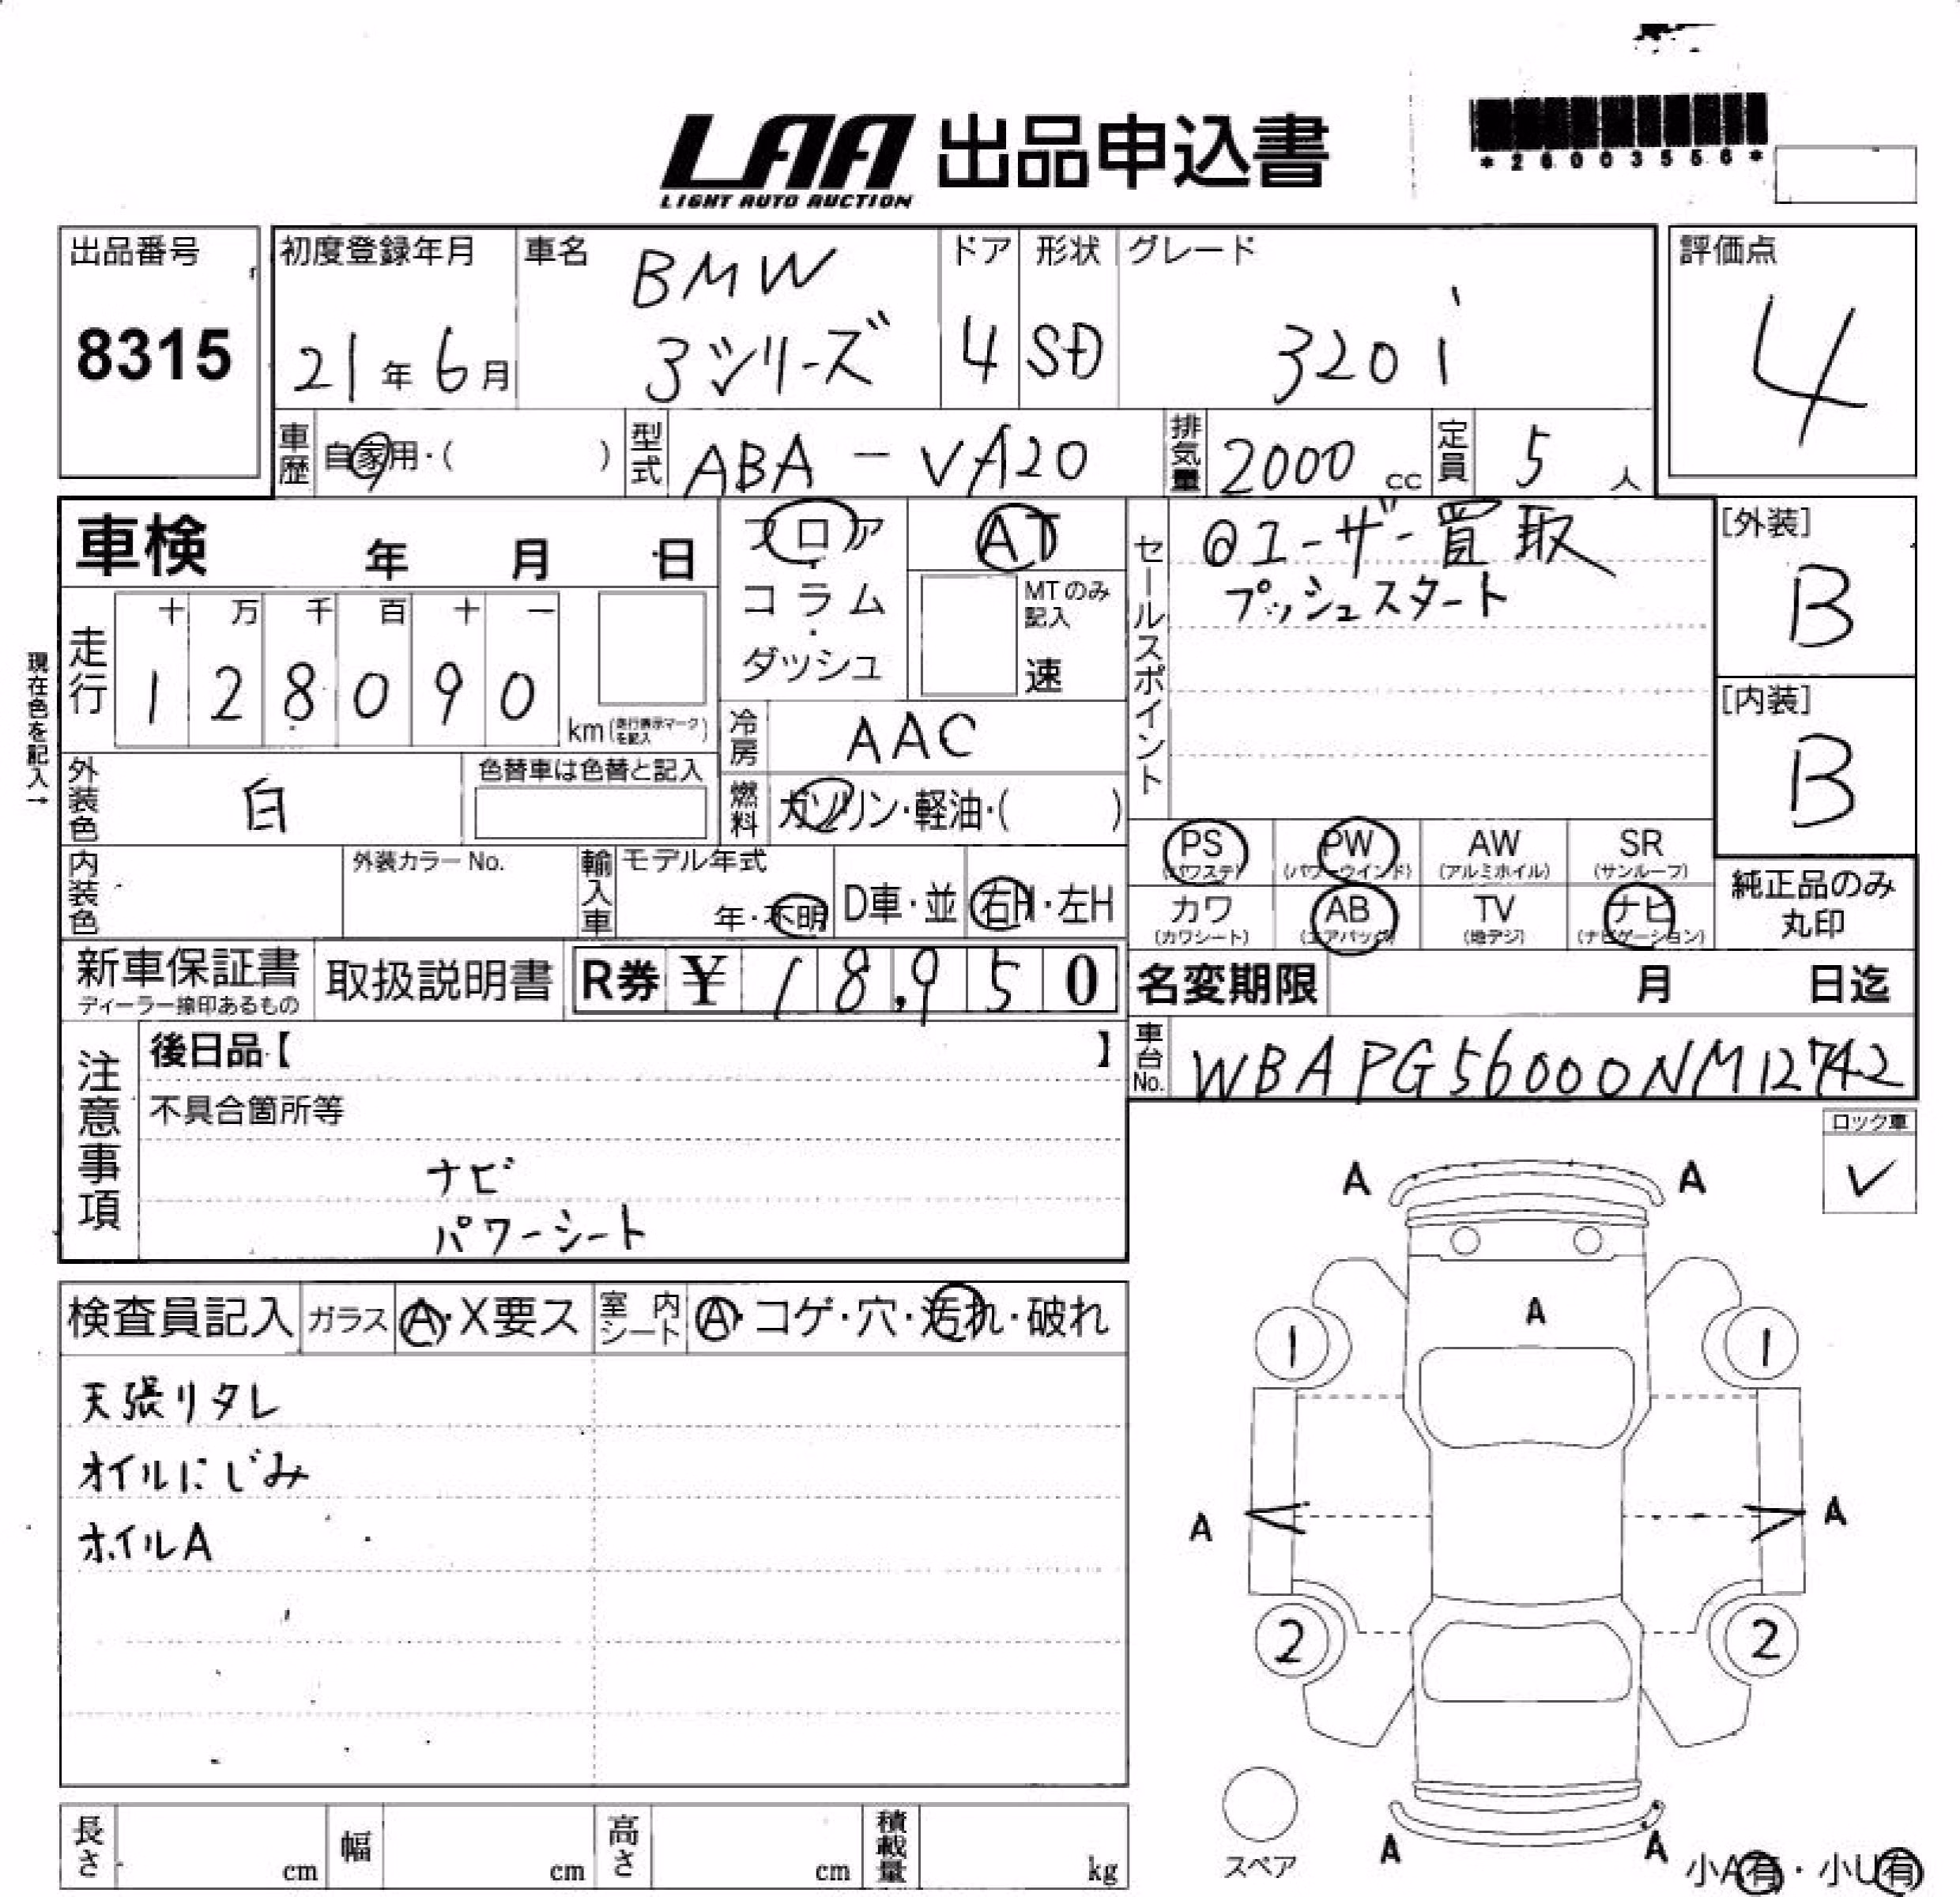 LAA 出品申込書
LIGHT AUTO AUCTION
*26003556*
出品番号
8315
初度登録年月
21年6月
車名
BMW
3シリーズ
ドア
4
形状
SD
グレード
320i
評価点
4
車歴 自家用・( )
型式 ABA-VA20
排気量 2000cc
定員 5人
車検 年 月 日
フロア・コラム・ダッシュ
AT
MTのみ記入
速
セールスポイント
◎ユーザー買取
プッシュスタート
[外装]
B
[内装]
B
現在色を記入→
走行
十 万 千 百 十 一
1 2 8 0 9 0
km(走行表示マークを記入)
冷房 AAC
燃料 ガソリン・軽油・( )
外装色 白
色替車は色替と記入
内装色
外装カラーNo.
輸入車
モデル年式
年・不明
D車・並
右H・左H
PS (パワステ)
PW (パワーウインド)
AW (アルミホイル)
SR (サンルーフ)
カワ (カワシート)
AB (エアバッグ)
TV (地デジ)
ナビ (ナビゲーション)
純正品のみ
丸印
新車保証書
ディーラー捺印あるもの
取扱説明書
R券 ¥ 18,950
名変期限 月 日迄
車台No. WBAPG56000NM12742
注意事項
後日品【 】
不具合箇所等
ナビ
パワーシート
ロック車
✓
検査員記入
ガラス A・X要ス
室内シート A・コゲ・穴・汚れ・破れ
天張りタレ
オイルにじみ
ホイルA
A A
A
1 1
A A
2 2
A A
スペア
小A有・小U有
長さ cm
幅 cm
高さ cm
積載量 kg